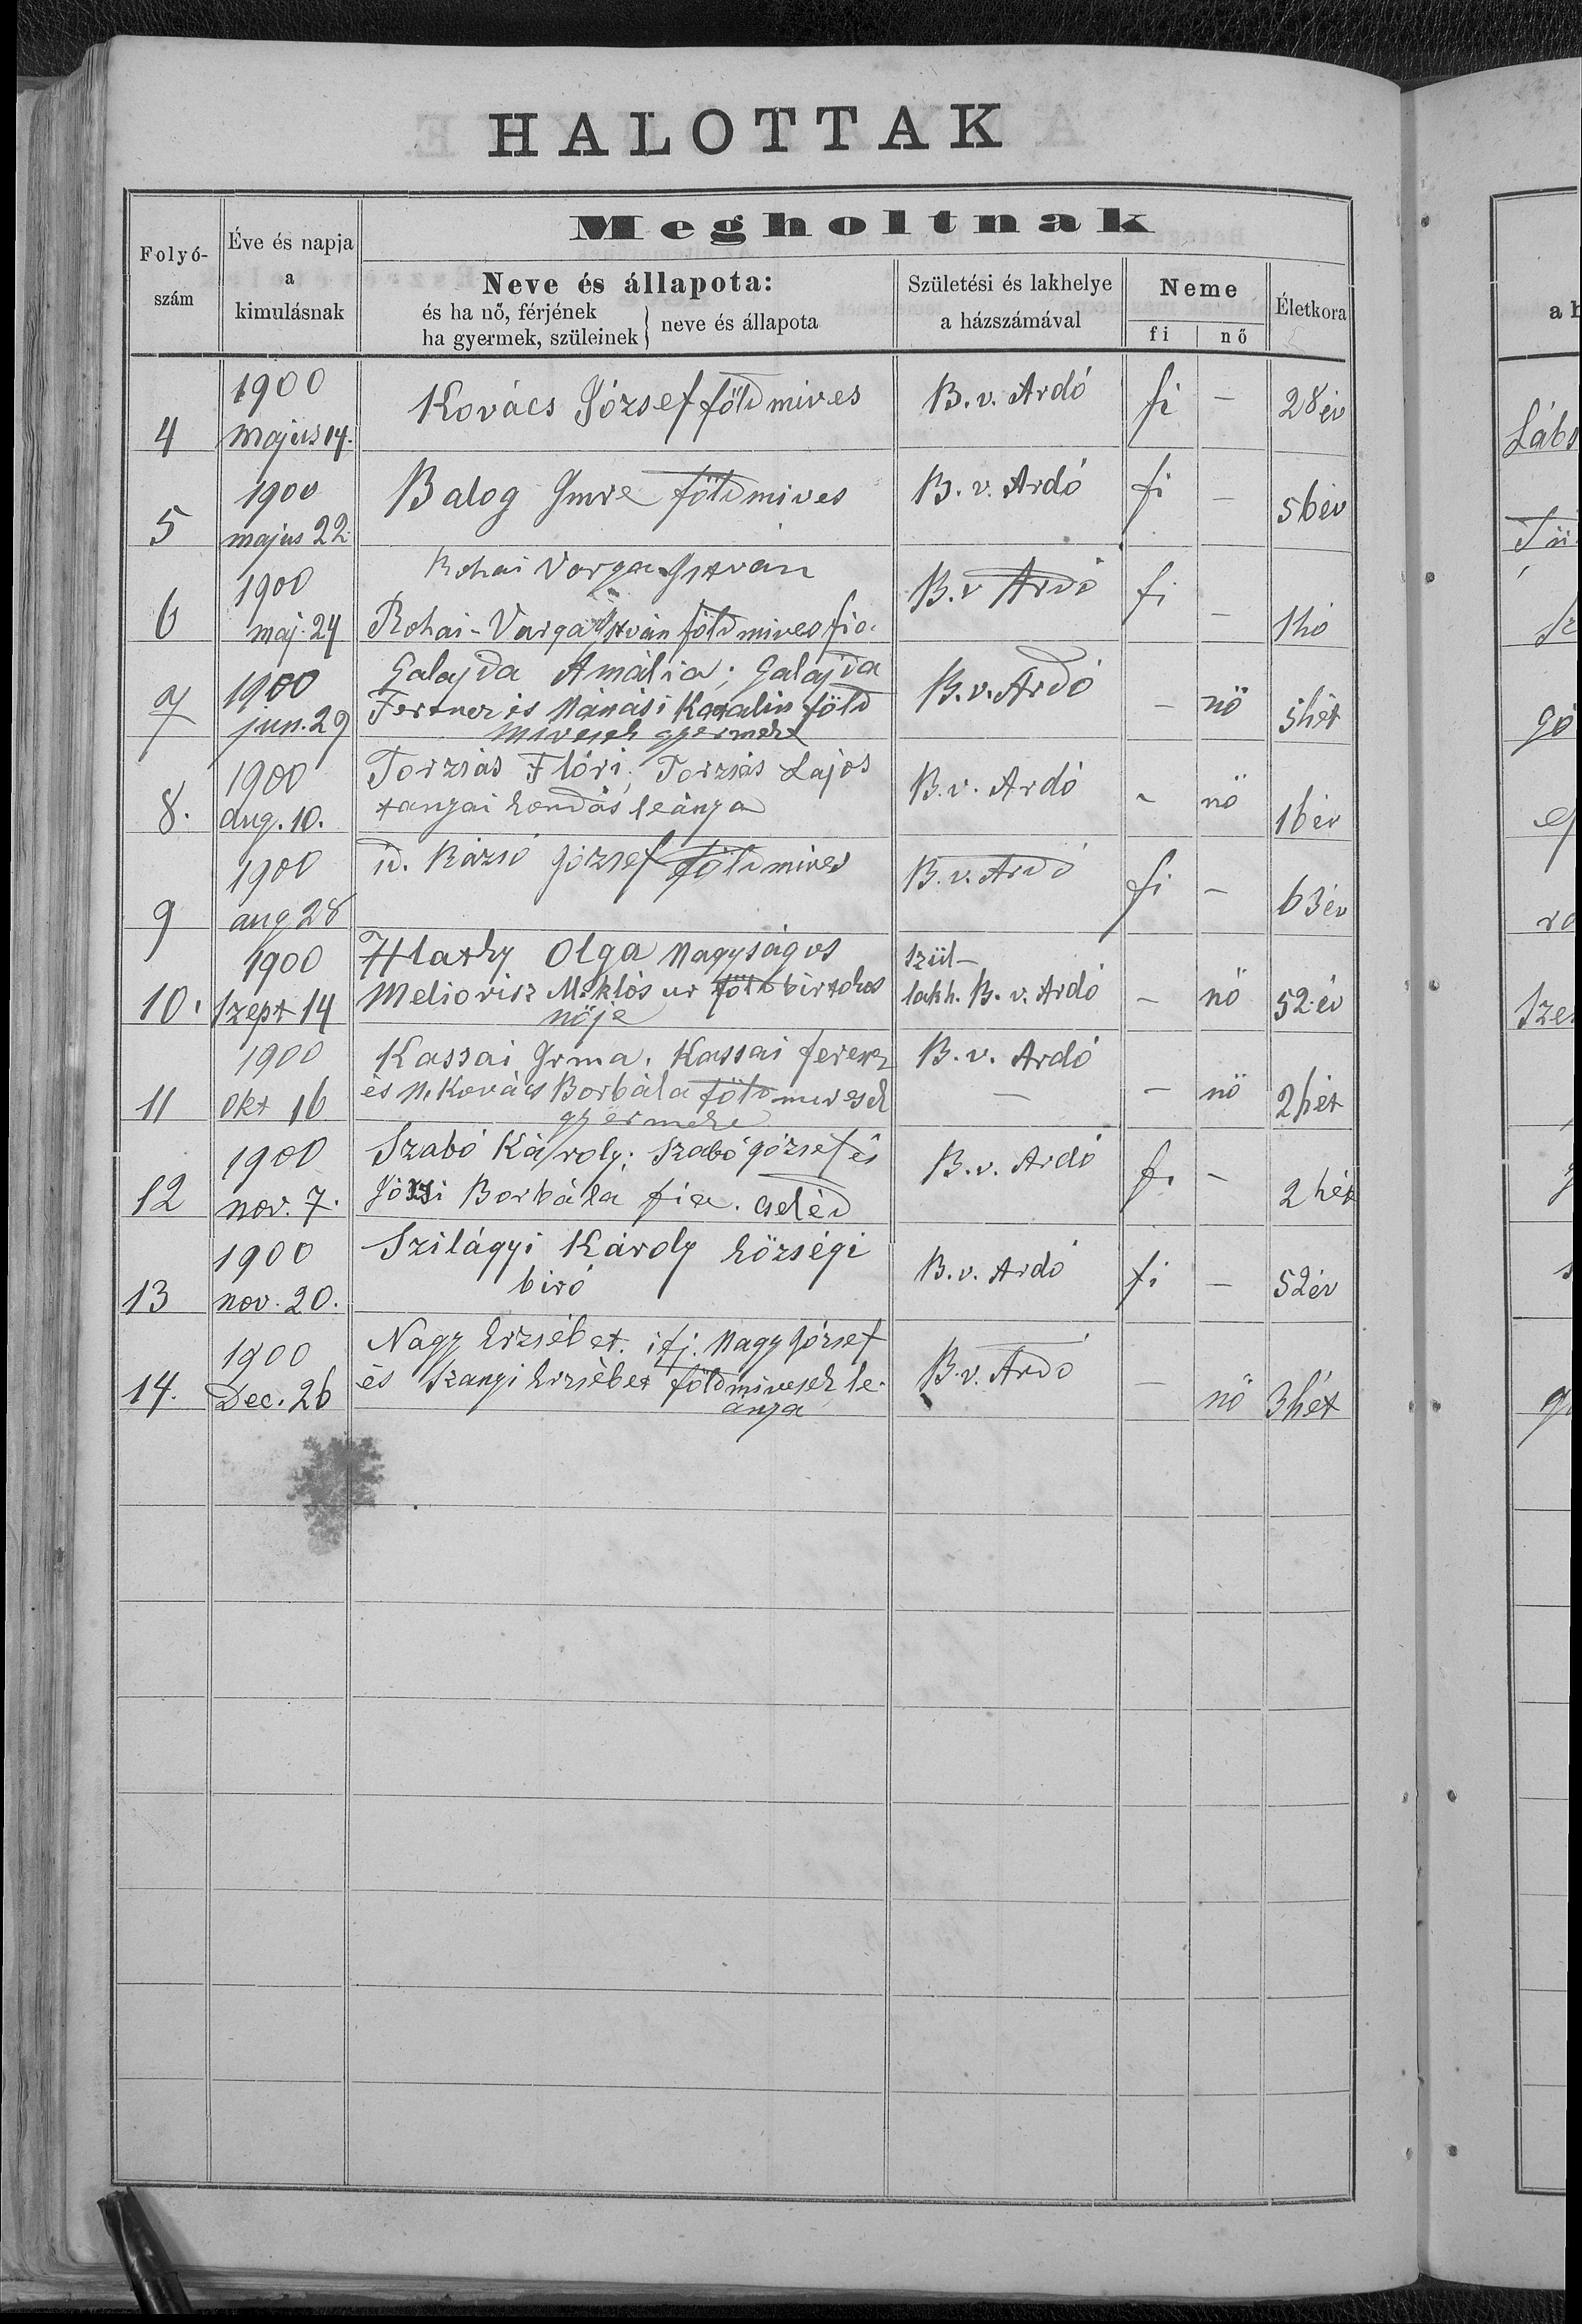 HALOTTAK
Folyó-
szám
Éve és napja
a
kimulásnak
Megholtnak
Neve és állapota:
és ha nő, férjének
ha gyermek, szüleinek
neve és állapota
Születési és lakhelye
a házszámával
Neme
fi
nő
Életkora
4 1900 Kovács József földmives B. v. Ardó fi — 28 év
május 14.
5 1900 Balog Imre földmives B. v. Ardó fi — 56 év
május 22.
6 1900 Rohai Varga István B. v Ardó fi — 1 hó
maj. 24 Rohai-Varga István földmives fia.
7 1900 Galajda Amália; Galajda B. v. Ardó — nö 5 hét
jun. 29 Ferencz és Nánási Katalin föld
mivesek gyermeke
8. 1900 Torzsás Flóri; Torzsás Lajos B. v. Ardó - nö 16 év
aug. 10. tanyai kondás leánya
9 1900 id. Rázsó József földmives B. v. Ardó fi — 63 év
aug 28
10. 1900 Hlatky Olga Nagyságos szül- — nö 52 év
Szept 14 Meliorisz Miklós ur földbirtokos lakh. B. v. Ardó
nője
11 1900 Kassai Irma. Kassai ferencz B. v. Ardó — nö 2 hét
okt 16 és N. Kovács Borbála földmivesek —
gyermeke
12 1900 Szabó Károly; Szabó József és B. v. Ardó fi — 2 hét
nov. 7. Borbála fia. cseléd
13 1900 Szilágyi Károly községi B. v. Ardó fi — 52 év
nov. 20. biró
14. 1900 Nagy Erzsébet. ifj. Nagy József B. v. Ardó — nö 3 hét
Dec. 26 és Szanyi Erzsébet földmivesek le-
ánya
Lábs